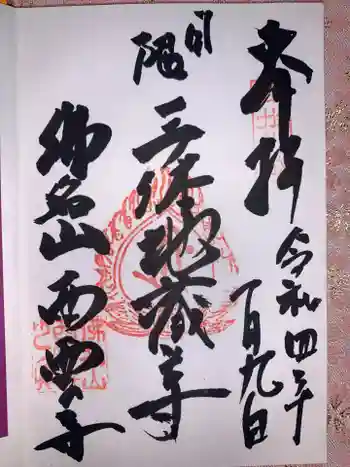 奉拝
令和四年
一月九日
日限
三体地蔵尊
名山西 寺